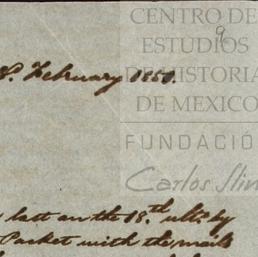 CENTRO DE
ESTUDIOS
9
DE HISTORIA
DE MEXICO
February 1850.
FUNDACIÓ
Carlos Slim
last on the 18.th ult.o by
Packet with the mails